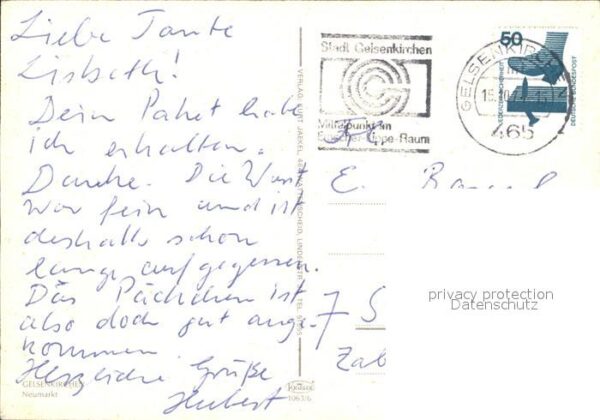 Liebe Tante
Lisbeth!
Dein Paket habe
ich erhalten.
Danke. Die Wurst
war fein und ist
deshalb schon
lange aufgegessen.
Das Päckchen ist
also doch gut ange-
kommen.
Herzliche Grüße
Hubert
GELSENKIRCHEN
Neumarkt
Stadt Gelsenkirchen
Mittelpunkt im
Emscher-Lippe-Raum
GELSENKIRCHEN
465
50
DEUTSCHE BUNDESPOST
E.
7 S
Zab
privacy protection
Datenschutz
1063/6